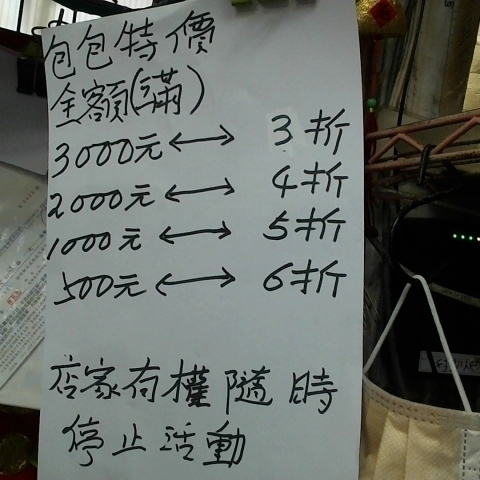 包包特價
全額(滿)
3000元↔3折
2000元↔4折
1000元↔5折
500元↔6折
店家有權隨時
停止活動